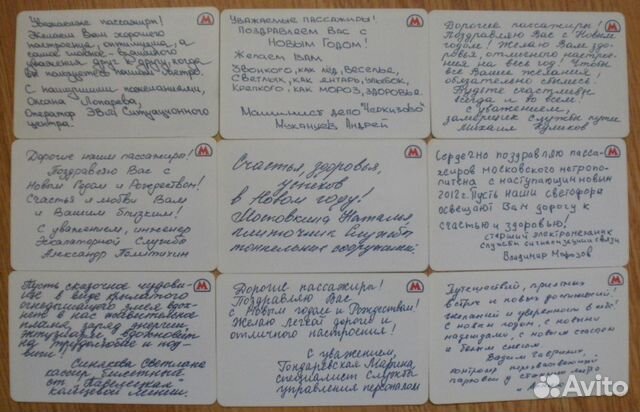 Уважаемые пассажиры!
Желаем Вам хорошего
настроения, оптимизма, а
самое главное - взаимного
уважения друг к другу, когда
Вы пользуетесь нашим метро.
С наилучшими пожеланиями,
Оксана
Оператор Ситуационного
центра.
Уважаемые пассажиры!
Поздравляем Вас с
Новым Годом!
Желаем Вам
Звонкого, как лёд, веселья,
Светлых, как янтарь, улыбок,
Крепкого, как мороз, здоровья.
Машинист депо "Черкизово"
Андрей
Дорогие пассажиры!
Поздравляю Вас с Новым
годом! Желаю Вам здо-
ровья, отличного настрое-
ния на весь год! Чтобы
все Ваши желания
обязательно сбылись!
Будьте счастливы
всегда и во всём!
С уважением,
обмерщик Службы пути
Михаил Куликов
Дорогие наши пассажиры!
Поздравляю Вас с
Новым Годом и Рождеством!
Счастья и любви Вам
и Вашим близким!
С уважением, инженер
Эскалаторной Службы
Александр
Счастья, здоровья,
успехов
в Новом году!
Наталья,
плиточник Служба
тоннельных сооружений
Сердечно поздравляю пасса-
жиров Московского метропо-
литена с наступающим новым
2012 г. Пусть наши светофоры
освещают Вам дорогу к
счастью и здоровью!
старший электромеханик
службы сигнализации и связи
Владимир Морозов
Пусть сказочное чудови-
ще в виде крылатого
огнедышащего змея вдох-
нет в нас живительное
пламя, заряд энергии,
энтузиазма и вдохновит
на трудолюбие и под-
виги!
Синякова Светлана
кассир билетный
ст. "Павелецкая"
кольцевой линии.
Дорогие пассажиры!
Поздравляю Вас
с Новым годом и Рождеством!
Желаю легкой дороги и
отличного настроения!
С уважением,
Гондаревская Марина
специалист Службы
управления персоналом
Путешествий, приятных
встреч и новых достижений,
желаний и уверенности в себе!
С новым годом, с новыми
надеждами, с новым счастьем
и белым снегом
Вадим
контролер
Avito